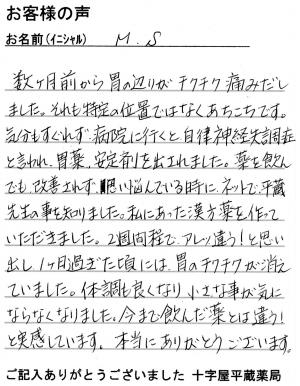 お客様の声
お名前(イニシャル) M.S
数ヶ月前から胃の辺りがチクチク痛みだし
ました。それも特定の位置ではなくあちこちです。
気分もすぐれず病院に行くと自律神経失調症
と言われ、胃薬、安定剤を出されました。薬を飲ん
でも改善されず思い悩んでいる時に、ネットで平蔵
先生の事を知りました。私にあった漢方薬を作って
いただきました。2週間程で、アレッ違う!と思い
出し1ヶ月過ぎた頃には、胃のチクチクが消え
ていました。体調も良くなり小さな事が気に
ならなくなりました。今まで飲んだ薬とは違う!
と実感しています。本当にありがとうございます。
ご記入ありがとうございました 十字屋平蔵薬局